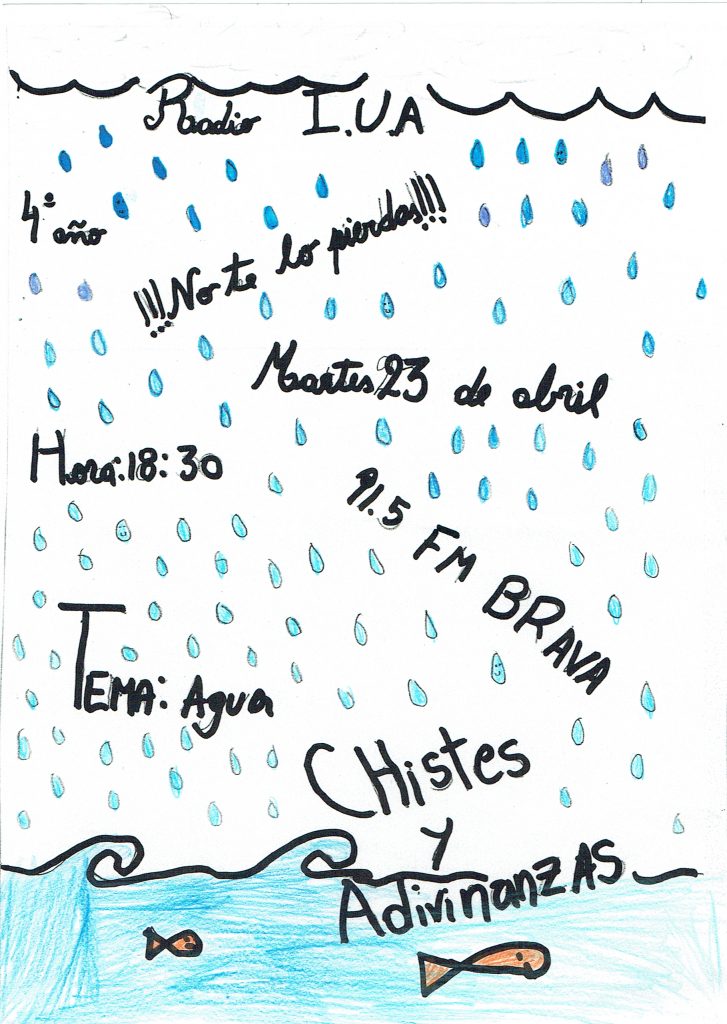 Radio I.U.A
4º año
!!!No te lo pierdas!!!
Martes 23 de abril
Hora: 18:30
91.5 FM BRAVA
TEMA: Agua
CHistes
y
AdivinanzAS